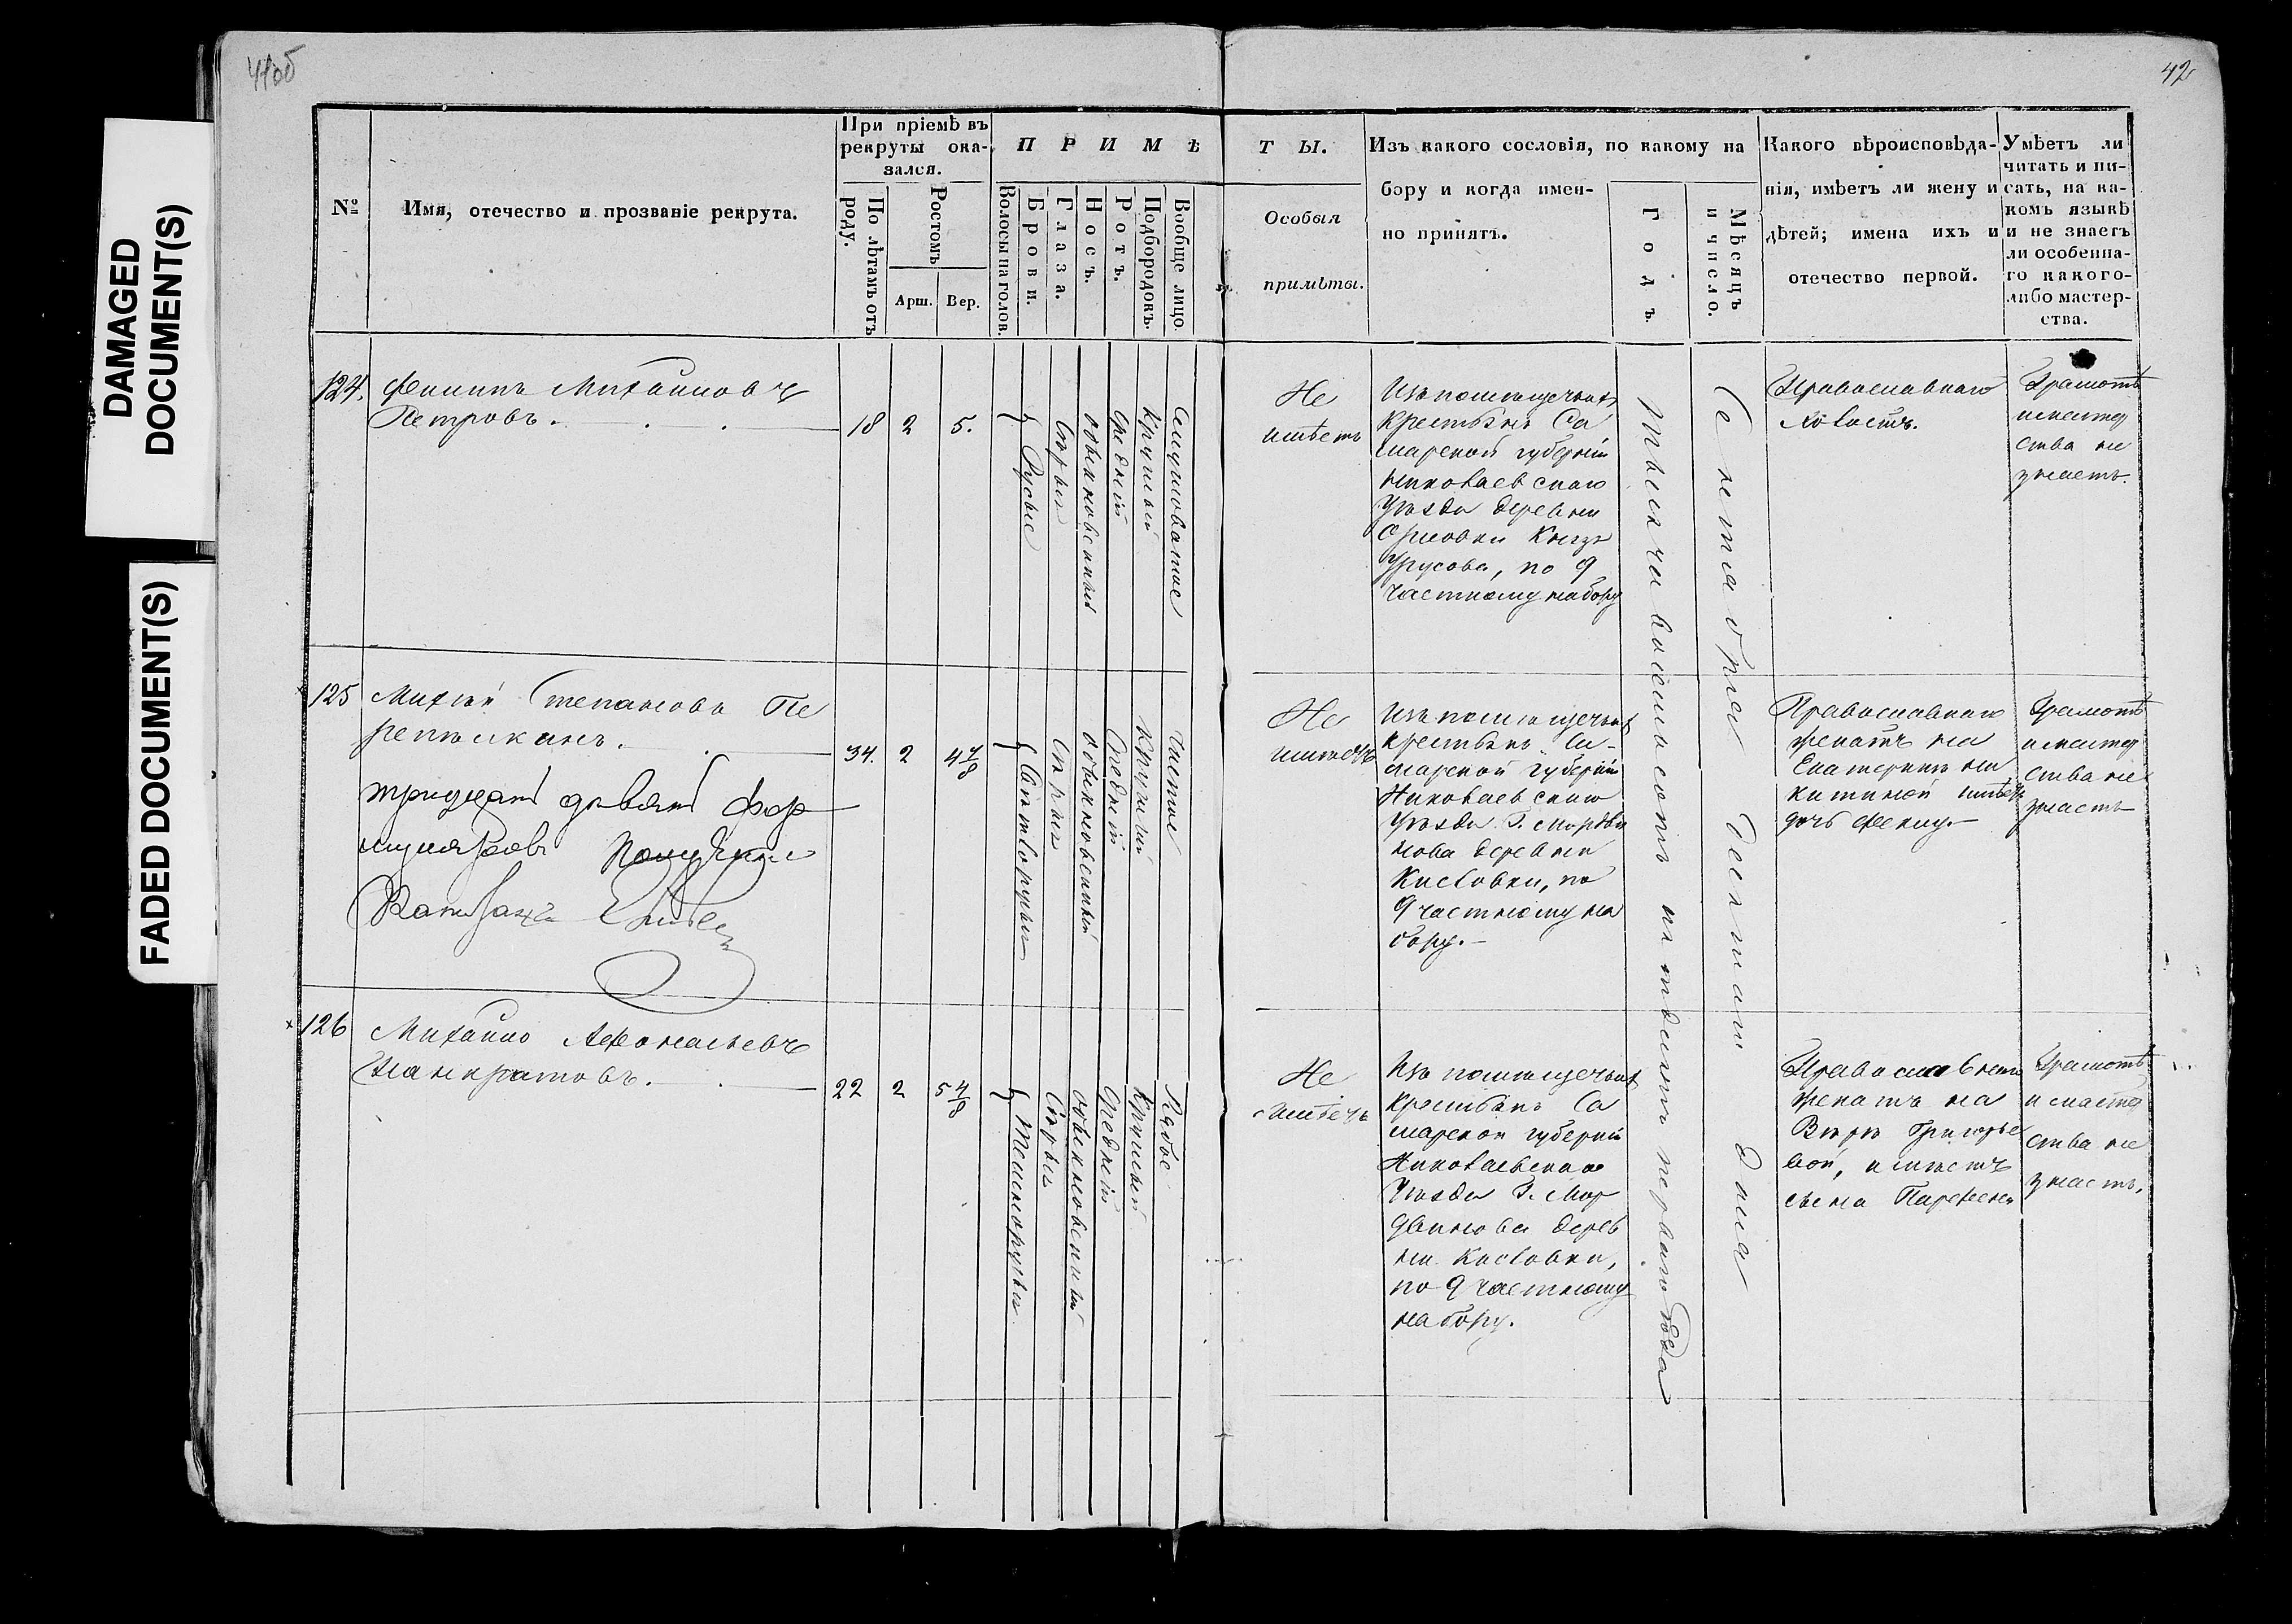 41об
42
DAMAGED
DOCUMENT(S)
FADED DOCUMENT(S)
№
Имя, отечество и прозваніе рекрута.
При пріемѣ въ
рекруты ока-
зался.
По лѣтамъ отъ
роду.
Ростомъ
Арш.
Вер.
ПРИМѢ
Волосы на голов.
Брови.
Глаза.
Носъ.
Ротъ.
Подбородокъ.
Вообще лицо.
ТЫ.
Особыя
примѣты.
Изъ какого сословія, по какому на
бору и когда имен-
но принятъ.
Годъ.
Мѣсяцъ
и число.
Какого вѣроисповѣда-
нія, имѣетъ ли жену и
дѣтей; имена ихъ и
отечество первой.
Умѣетъ ли
читать и пи-
сать, на ка-
комъ языкѣ
и не знаетъ
ли особенна-
го какого-
либо мастер-
ства.
124.
Филипъ Михайловъ
Петровъ.
18
2
5.
Русые
Сѣрыя
обыкновенный
средній
Круглый
Не
имѣетъ
Изъ помѣщечьихъ
крестьянъ Са
марской губерніи
Николаевскаго
Уѣзда деревни
Орловки Князя
Урусова, по 9
частному набору
Тысяча восемьсотъ пятьдесятъ перваго года
Сентября десятаго дня
Православнаго
холостъ.
Грамотѣ
и мастер
ства не
знаетъ.
125
Михей Степановъ Пе
34.
2
4 7/8
тридцать девять фор
муляровъ получилъ
Свѣтлорусыя
Сѣрыя
обыкновенный
Средній
Круглый
Чистое
Не
имѣетъ
Изъ помѣщечьихъ
крестьянъ Са-
марской губерніи
Николаевскаго
Уѣзда Г. Мордви
нова деревни
Кисловки, по
9 частному на
бору.-
Православнаго
женатъ на
Екатеринѣ Ни
китиной имѣетъ
дочь Феклу.-
Грамотѣ
и мастер
ства не
знаетъ
126
Михайло Афонасьевъ
Панкратовъ.
22
2
5 4/8
Темнорусыя
Сѣрыя
обыкновенный
средній
Круглый
Рябое
Не
имѣетъ
Изъ помѣщечьихъ
крестьянъ Са
марской губерніи
Николаевскаго
Уѣзда Г. Мор
двинова дерев
ни Кисловки,
по 9 частному
набору.
Православнаго
женатъ на
Вѣрѣ Григорье
вой, имѣетъ
сына
Грамотѣ
и мастер
ства не
знаетъ.